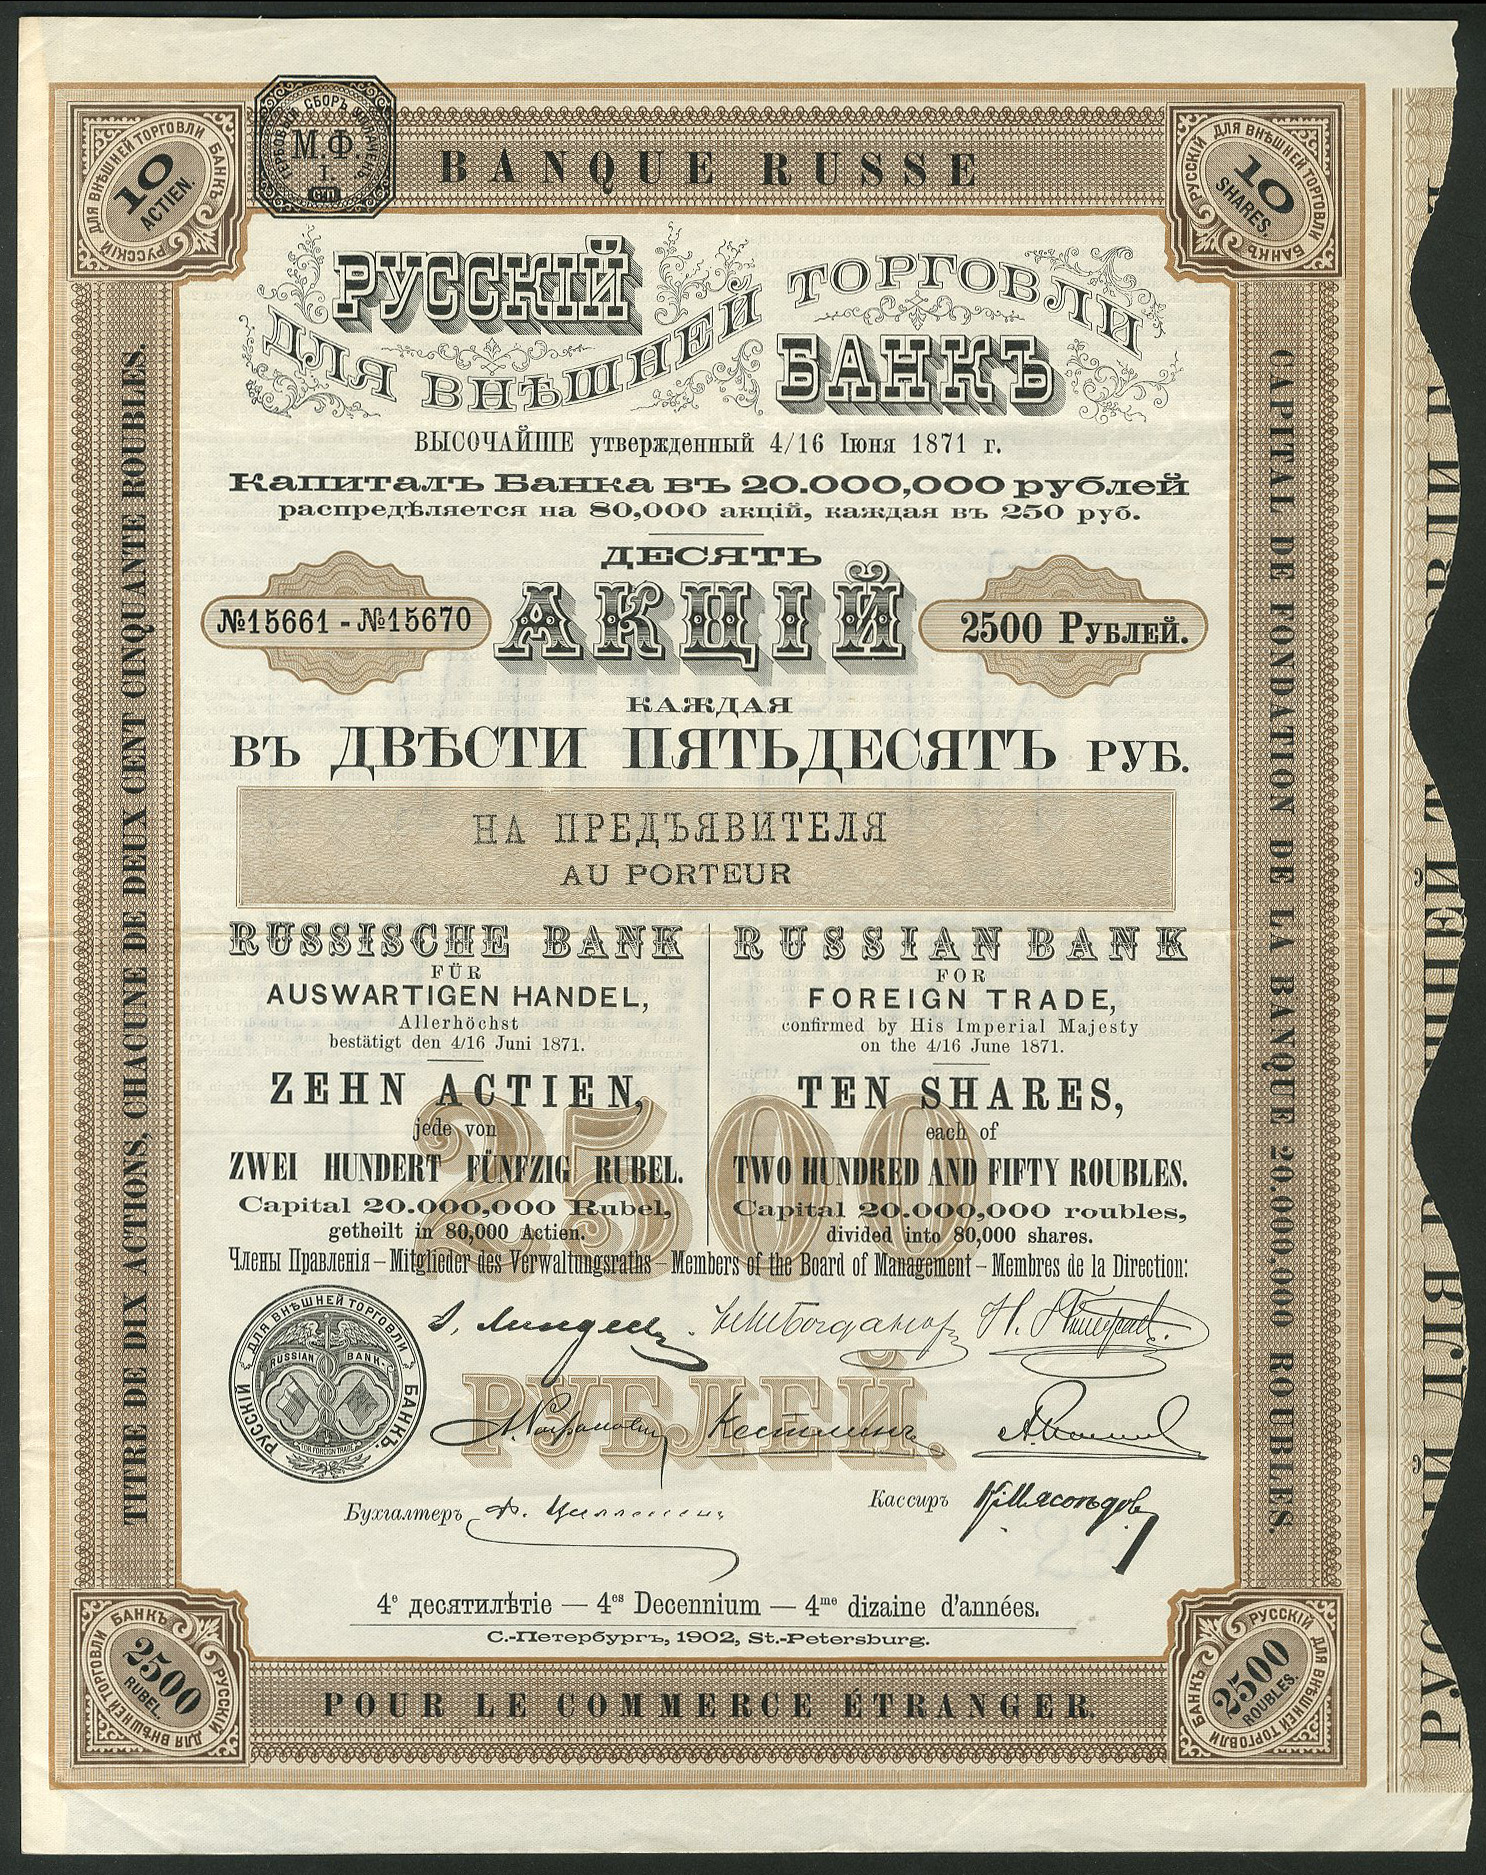 BANQUE RUSSE
ГЕРБОВЫЙ СБОРЪ УПЛАЧЕНЪ
М.Ф.
I.
СПБ
РУССКІЙ ДЛЯ ВНѢШНЕЙ ТОРГОВЛИ БАНКЪ
10
ACTIEN.
РУССКІЙ ДЛЯ ВНѢШНЕЙ ТОРГОВЛИ БАНКЪ
10
SHARES.
РУССКІЙ
ДЛЯ ВНѢШНЕЙ
ТОРГОВЛИ
БАНКЪ
ВЫСОЧАЙШЕ утвержденный 4/16 Іюня 1871 г.
Капиталъ Банка въ 20.000,000 рублей
распредѣляется на 80,000 акцій, каждая въ 250 руб.
ДЕСЯТЬ
№15661 - №15670
АКЦІЙ
2500 РУБЛЕЙ.
КАЖДАЯ
ВЪ ДВѢСТИ ПЯТЬДЕСЯТЪ РУБ.
НА ПРЕДЪЯВИТЕЛЯ
AU PORTEUR
RUSSISCHE BANK
FÜR
AUSWARTIGEN HANDEL,
Allerhöchst
bestätigt den 4/16 Juni 1871.
ZEHN ACTIEN,
jede von
ZWEI HUNDERT FÜNFZIG RUBEL.
Capital 20.000,000 Rubel,
getheilt in 80,000 Actien.
RUSSIAN BANK
FOR
FOREIGN TRADE,
confirmed by His Imperial Majesty
on the 4/16 June 1871.
TEN SHARES,
each of
TWO HUNDRED AND FIFTY ROUBLES.
Capital 20.000,000 roubles,
divided into 80,000 shares.
2500
Члены Правленія – Mitglieder des Verwaltungsraths – Members of the Board of Management – Membres de la Direction:
РУССКІЙ ДЛЯ ВНѢШНЕЙ ТОРГОВЛИ БАНКЪ.
RUSSIAN BANK
FOR FOREIGN TRADE
РУБЛЕЙ.
Бухгалтеръ
Кассиръ
4е десятилѣтіе — 4es Decennium — 4me dizaine d'années.
С.-Петербургъ, 1902, St.-Petersburg.
POUR LE COMMERCE ÉTRANGER.
РУССКІЙ ДЛЯ ВНѢШНЕЙ ТОРГОВЛИ БАНКЪ
2500
RUBEL.
РУССКІЙ ДЛЯ ВНѢШНЕЙ ТОРГОВЛИ БАНКЪ
2500
ROUBLES.
TITRE DE DIX ACTIONS, CHACUNE DE DEUX CENT CINQUANTE ROUBLES.
CAPITAL DE FONDATION DE LA BANQUE 20.000,000 ROUBLES.